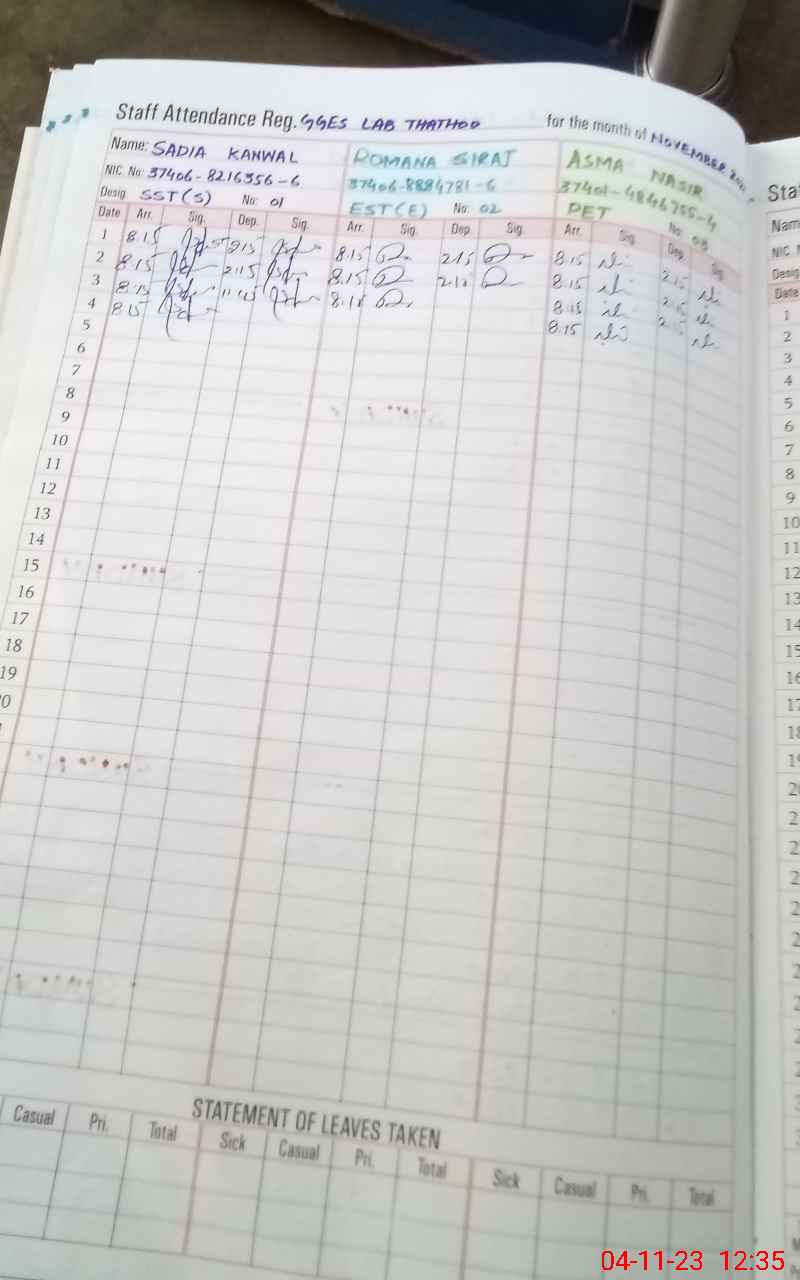 Staff Attendance Reg. GGES LAB THATHOO for the month of NOVEMBER
Name: SADIA KANWAL ROMANA SIRAJ ASMA NASIR
NIC. No: 37406-8216356-6 37406-8884781-6 37401-4846755-4
Desig. SST(S) No: 01 EST(E) No: 02 PET No: 03
Date Arr. Sig. Dep. Sig. Arr. Sig. Dep. Sig. Arr. Sig. Dep. Sig.
1 8:15 2:15 8:15 2:15 8:15 2:15
2 8:15 2:15 8:15 2:15 8:15 2:15
3 8:15 8:15 8:15 2:15
4 8:15 8:15
5
6
7
8
9
10
11
12
13
14
15
16
17
18
19
STATEMENT OF LEAVES TAKEN
Casual Pri. Total Sick Casual Pri. Total Sick Casual Pri. Total
Sta
Nam
NIC
Desig
Date
1
2
3
4
5
6
7
8
9
10
11
12
13
14
15
04-11-23 12:35